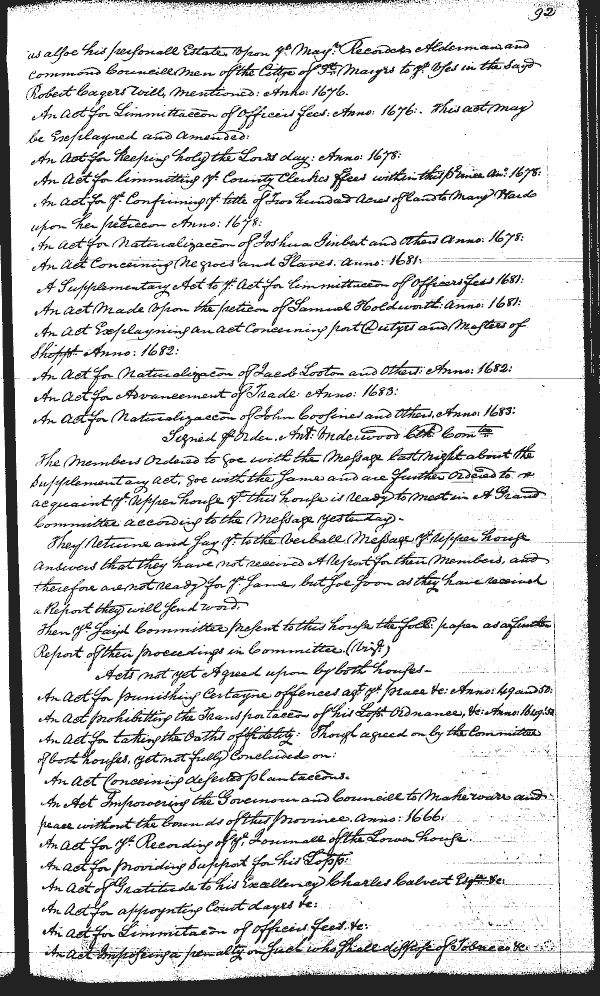 92
as alsoe his personall Estate, Vpon yᵉ Mayᵒʳ Recorder Alderman and
common Councill Men of the Cittye of Sᵗ Maryes to yᵉ Vses in the sayd
Robert Cagers Will, Mentioned: Anno 1676.
An Act for Limmittaccon of Officers fees: Anno: 1676: This act May
be Explayned and amended:
An Act for Keeping holy the Lords day: Anno: 1678:
An Act for limmitting yᵉ County Clerks ffees within this province an: 1678:
An Act for yᵉ Confirming yᵉ title of Two hundred Acres of land to Mary
upon her peticcon Anno: 1678:
An Act for Naturalizaccon of Joshua Guibert and others Anno: 1678:
An Act Concerning Negroes and Slaves. Anno: 1681:
A Supplementary Act to yᵉ Act for limmittaccon of Officers fees 1681:
An Act Made Vpon the peticon of Samuel Holdsworth: Anno: 1681:
An Act Explayning an act Concerning port Dutyes and Masters of
Shipps Anno: 1682:
An Act for Naturalizacon of Jacob Looton and Others: Anno: 1682:
An Act for Advancement of Trade: Anno: 1683:
An Act for Naturalizaccon of John Coosines and Others, Anno: 1683:
Signed ꝑ Order. Ant: Underwood Clk Comᵗᵉᵉ
The Members Ordered to goe with the Message last night about the
Supplementary Act, goe with the Same and are further Ordered to
acquaint yᵉ Upper house yᵗ this house is ready to meet in A Grand
Committee according to the Message yesterday.
They Returne and Say yᵗ to the Verball Message yᵉ Upper house
answers that they have not received A report for their Members, and
therefore are not ready for yᵉ Same, but Soe Soon as they have received
a Report they will Send word.
Then yᵉ Said Committee present to this house the foll: paper as a further
Report of their proceedings in Committee (Vizᵗ)
Acts not yet Agreed upon by both houses.
An Act for punishing Certayne offences agᵗ yᵉ peace &c: Anno: 49 and 50:
An Act prohibitting the Transportaccon of his Lopˢ Ordnance, &c: Anno:
An Act for taking the Oaths of fidelity: Though agreed on by the Committee
of both houses, yet not fully Concluded on:
An Act Concerning deserted plantaccons.
An Act Impowering the Governour and Councill to Make warr and
peace without the bounds of this Province. Anno: 1666:
An Act for yᵉ Recording of yᵉ Journall of the Lower house.
An Act for providing Support for his Lopp:
An Act of Gratitude to his Excellency Charles Calvert Esqʳ &c:
An Act for appoynting Court dayes &c:
An Act for Limmitacon of Officers fees &c:
An Act Imposeing a penalty on Such who Shall dispose of Tobacco &c.